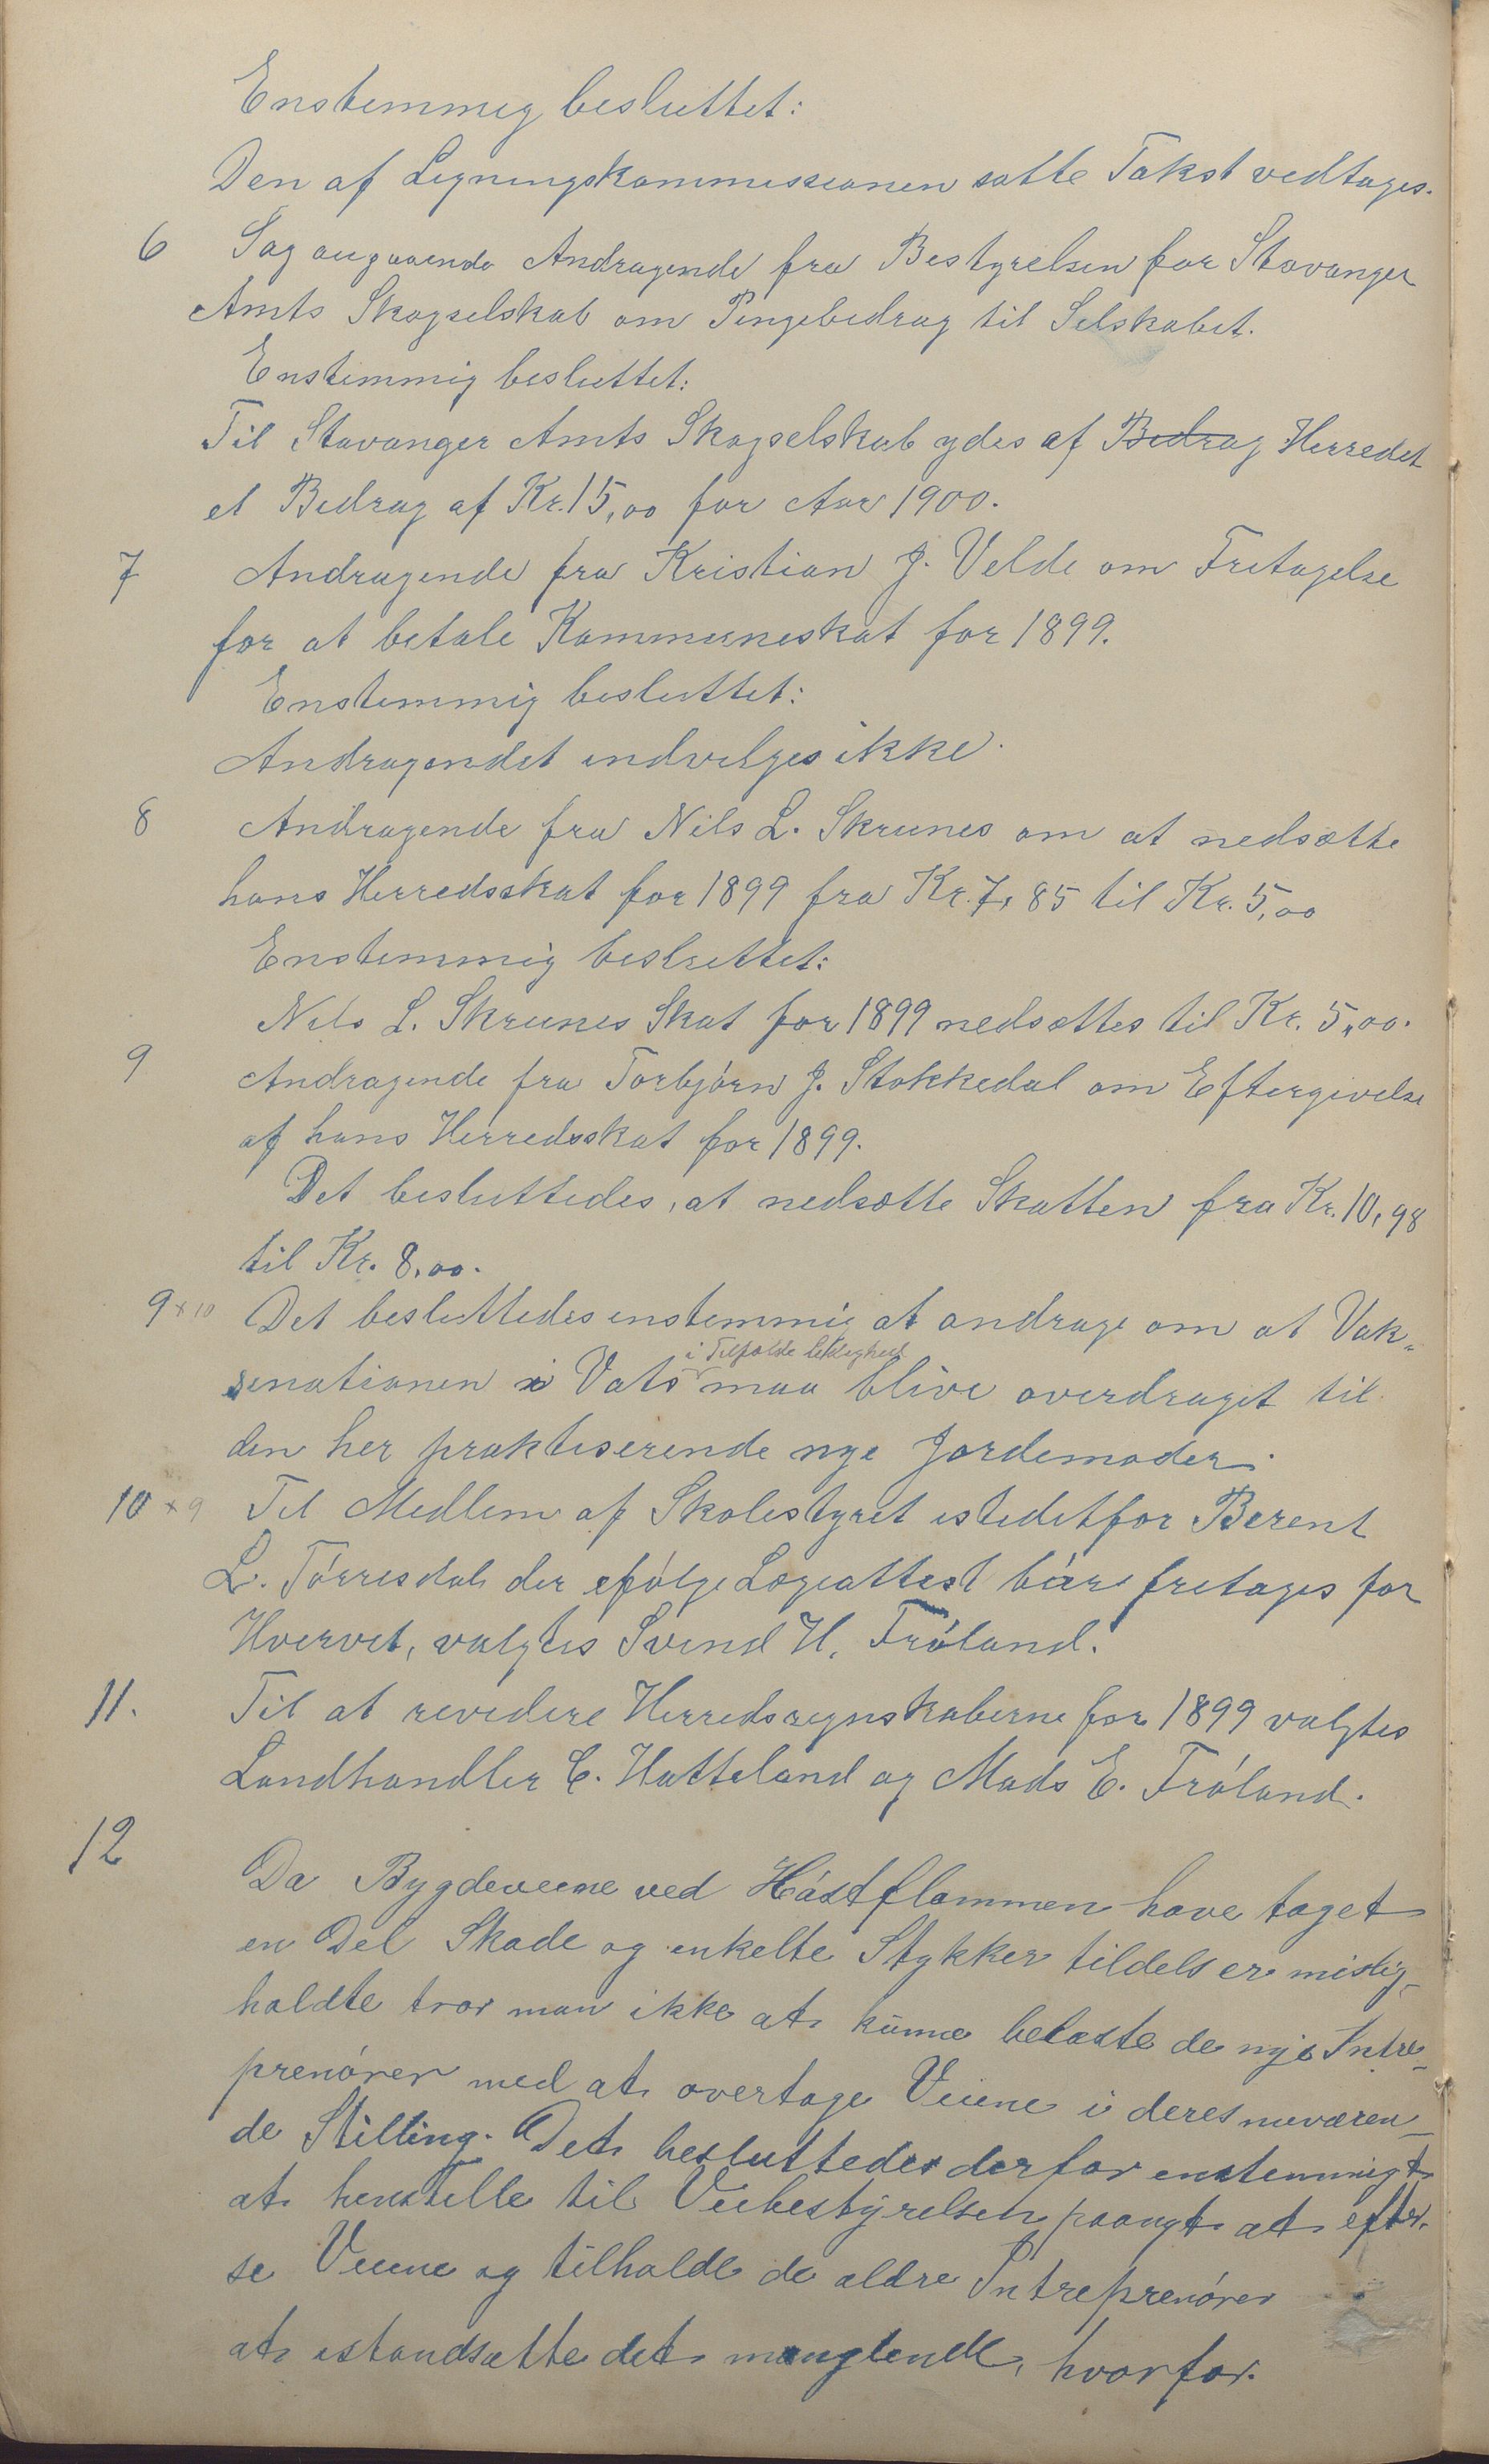 Enstemmig besluttet:
Den af Ligningskommissionen satte Takst vedtages.
6 Sag angaaende Andragende fra Bestyrelsen for Stavanger
Amts Skogselskab om Pengebedrag til Selskabet.
Enstemmig besluttet:
Til Stavanger Amts Skogselskab ydes af Bedrag Herredet
et Bedrag af Kr. 15,00 for Aar 1900.
7 Andragende fra Kristian J. Velde om Fritagelse
for at betale Kommuneskat for 1899.
Enstemmig besluttet:
Andragendet indvilges ikke.
8 Andragende fra Nils L. Skrunes om at nedsætte
hans Herredsskat for 1899 fra Kr. 7,85 til Kr. 5,00
Enstemmig besluttet:
Nils L. Skrunes Skat for 1899 nedsættes til Kr. 5,00.
9 Andragende fra Torbjørn J. Stokkedal om Eftergivelse
af hans Herredsskat for 1899.
Det besluttedes, at nedsætte Skatten fra Kr. 10,98
til Kr. 8,00.
9 x 10 Det besluttedes enstemmig at andrage om at Vak-
i Tilfælde leilighed
sinationen i Vats maa blive overdraget til
den her praktiserende nye Jordemoder.
10 x 9 Til Medlem af Skolestyret istedetfor Berent
L. Tørresdal der ifølge Lægeattest bør fritages for
Hvervet, valgtes Svend H. Frøland.
11. Til at revidere Herredsregnskaberne for 1899 valgtes
Landhandler C. Hatteland og Mads E. Frøland.
12 Da Bygdeveiene ved Høstflommen have taget
en Del Skade og enkelte Stykker tildels er mislig-
holdte tror man ikke at kunne belaste de nye Intre-
prenører med at overtage Veiene i deres nuværen-
de Stilling. Det besluttedes derfor enstemmigt
at henstille til Veibestyrelsen paanyt at efter-
se Veiene og tilholde de ældre Intreprenører
at istandsætte det manglende, hvorfor.